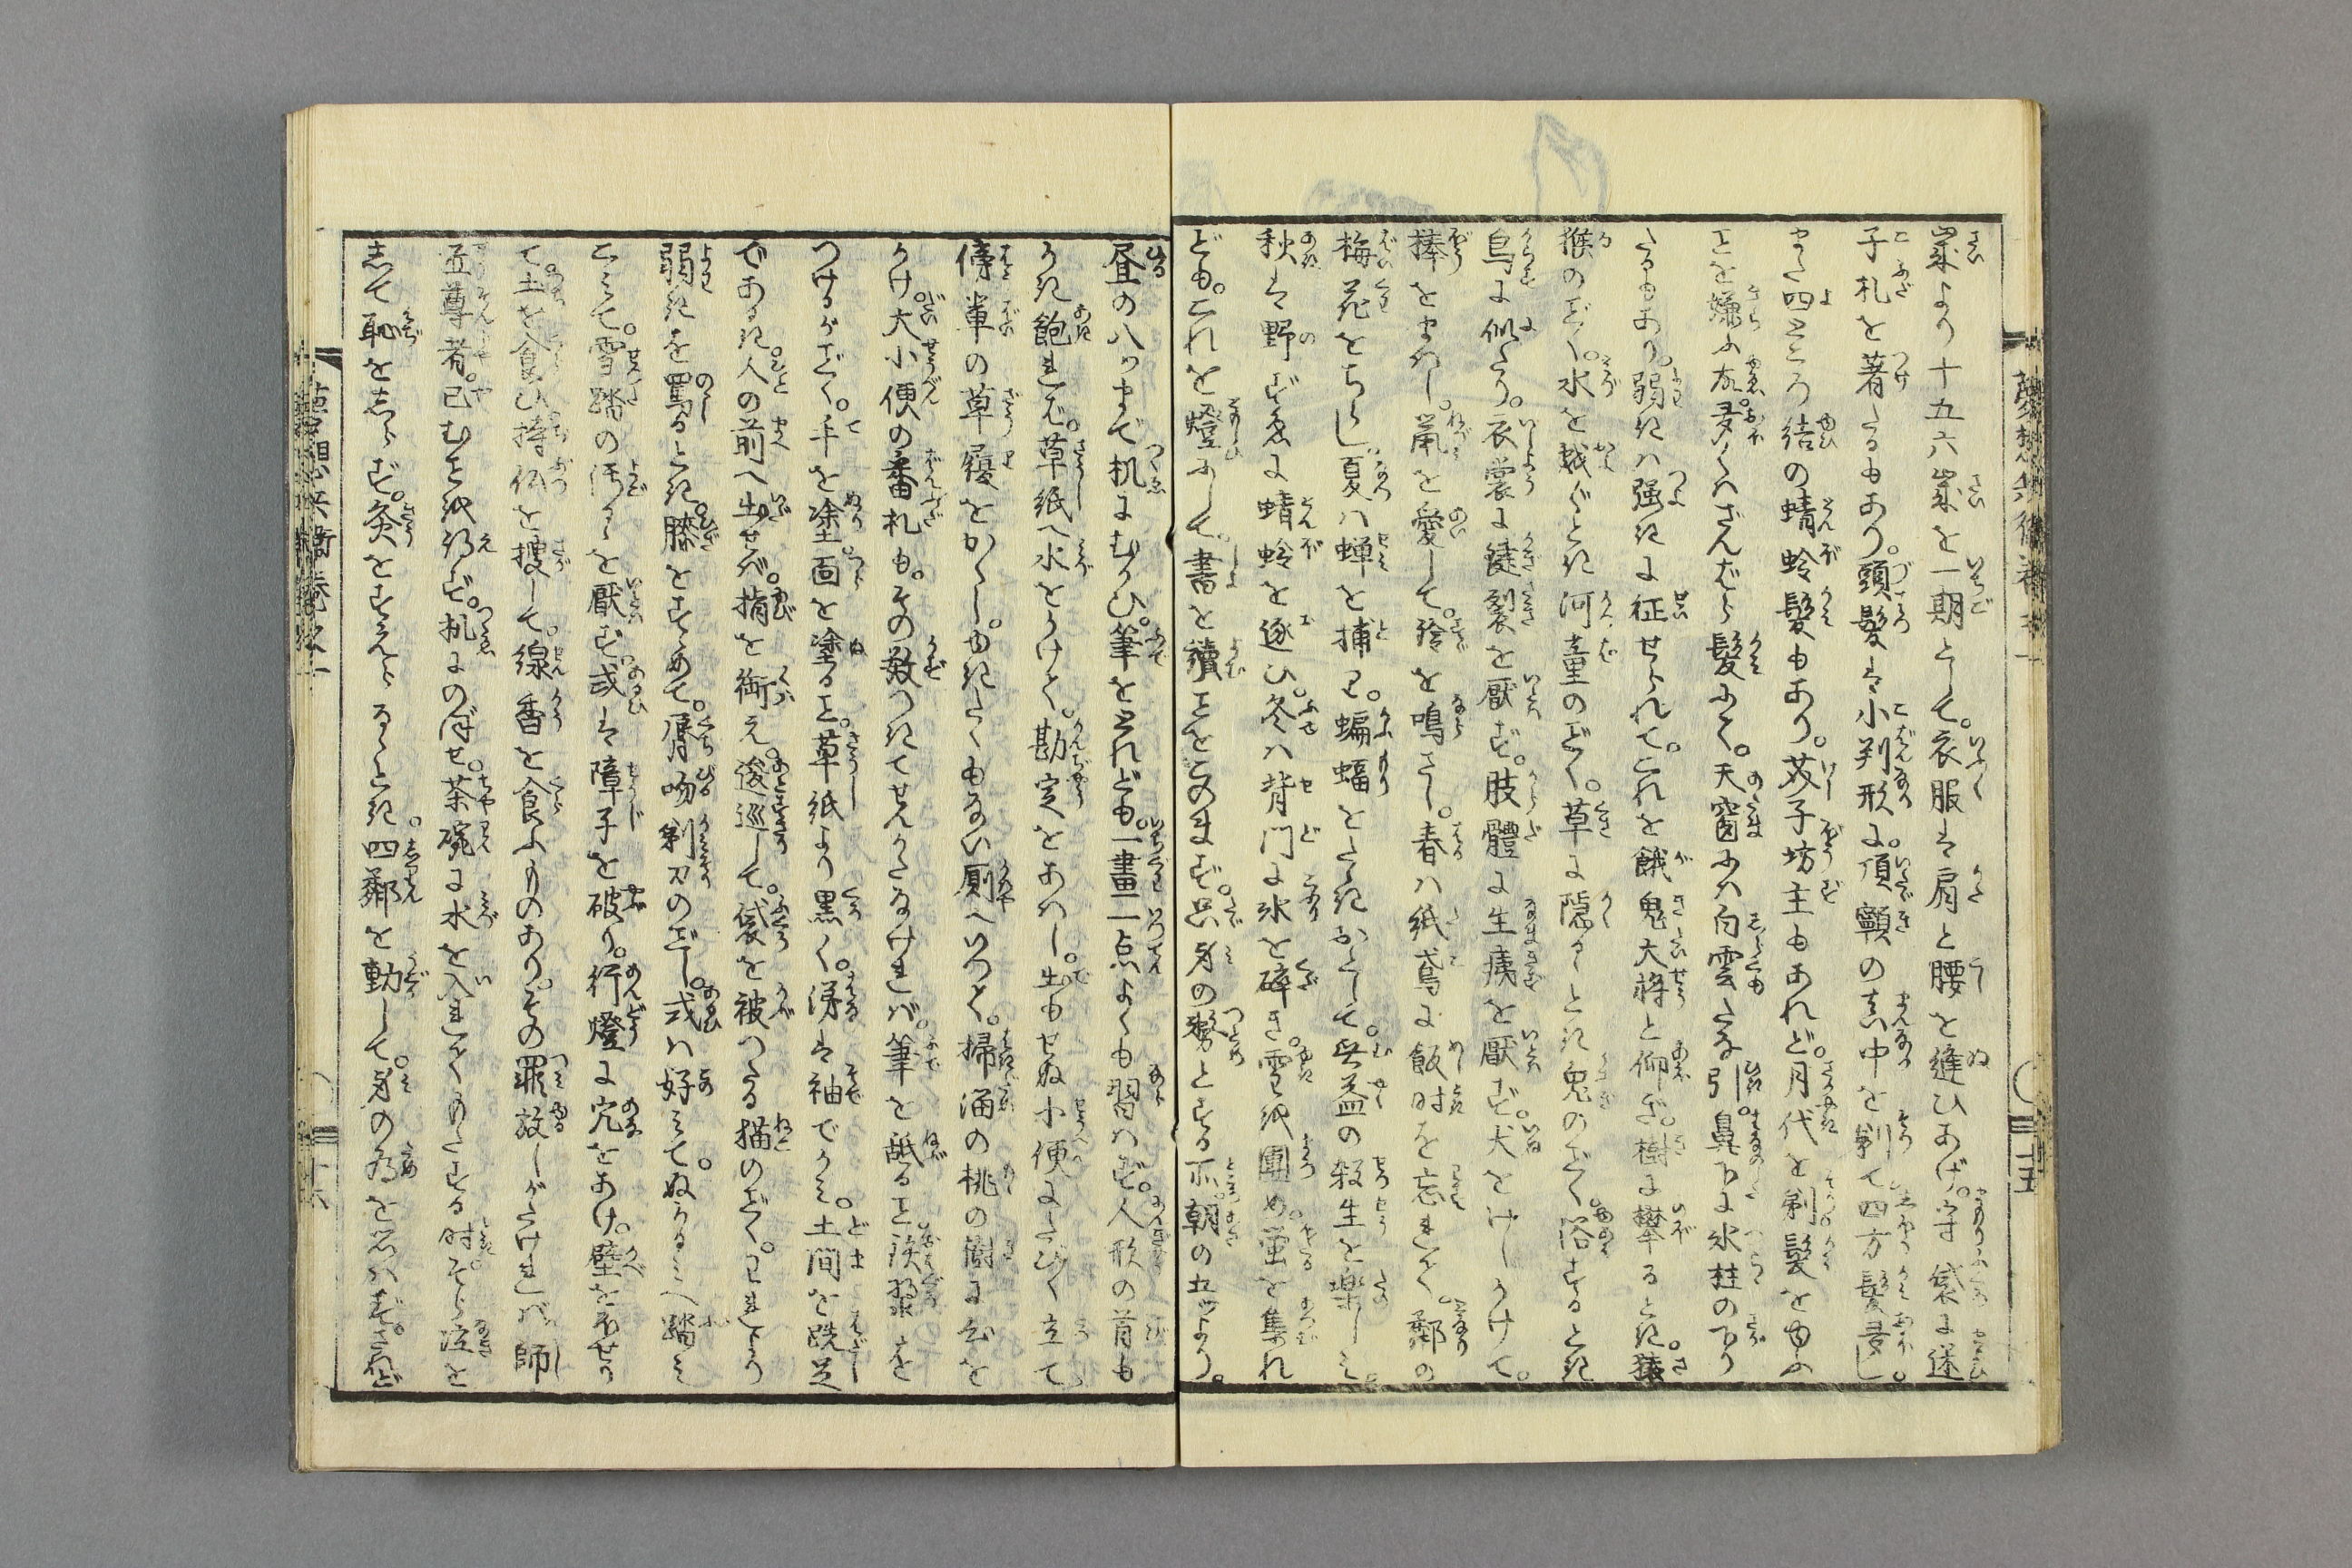 歳より十五六歳を一期として。衣服は肩と腰を縫ひあげ。守袋に迷
子札を著たるもあり。頭髪は小判形に。頂顖の真中を剃て四方髪多し。
また四ところ結の蜻蛉髪もあり。芥子坊主もあれど。月代を剃髪をゆふ
ことを嫌ふ故。多くはざんばら髪にて。天窗には白雲たな引。鼻下に氷柱の下り
たるもあり。弱きは強きに征せられて。これを餓鬼大将と仰ぎ。樹に攀るとき。猿
猴のごとく。水を越ぐとき河童のごとく。草に隠るゝとき鬼のごとく。浴するとき
烏に似たり。衣裳に鍵裂を厭ず。肢體に生痍を厭ず。犬をけしかけて。
捧をまはし。鼠を愛して。鈴を鳴さし。春は紙鳶に飯時を忘れて。鄰の
梅花をちらし。夏は蝉を捕り。蝙蝠をたゝきおとして。無益の殺生を楽しみ。
秋は野ずゑに蜻蛉を逐ひ。冬は背門に氷を砕き。雪を團め。蛍を集れ
ども。これを燈にして。書を讀ことをこのまず。只身の勤とする所。朝の五ツより。
昼の八ツまで机にむかひ。筆をとれども。一畫一点よくも習はず。人形の首も
かき飽れば。草紙へ水をかけて。勘定をあはし。出もせぬ小便にたびたび立て
傍輩の草履をかくし。ゆきたくもない厠へいつて。掃溜の桃の樹に尿を
かけ。大小便の番札も。その数つきてせんかたなければ。筆を舐ること飴をねぶる
つけるがごとく。手を塗。面を塗ること。草紙より黒く。洟は袖でかみ。土間を跣足
であるき。人の前へ出せば。指を銜え。逡巡して。袋を被つたる猫のごとし。
弱きを罵るとき。膝をすゝめて。脣吻剃刀のごとし。或は好みて。ぬかるみへ踏み
こみて。雪踏の汚るゝを厭ず。或は障子を破り。行燈に穴をあけ。壁を
て。土を食ひ。持仏を捜して。線香を食ふものあり。その罪赦しがたければ。師
匠尊者。已むことを得ず。机にのぼせ。茶碗に水を入れてもたする時。そら泣を
して恥をしらず。灸をすえらるゝとき。四鄰を動して。身の為を思はず。されど